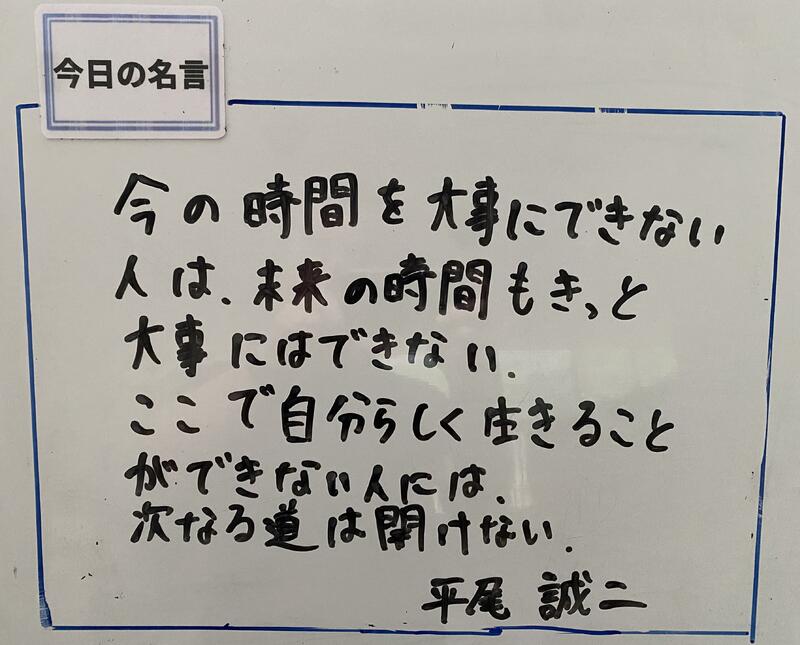 今日の名言
今の時間を大事にできない
人は、未来の時間もきっと
大事にはできない.
ここで自分らしく生きること
ができない人には、
次なる道は開けない.
平尾 誠二